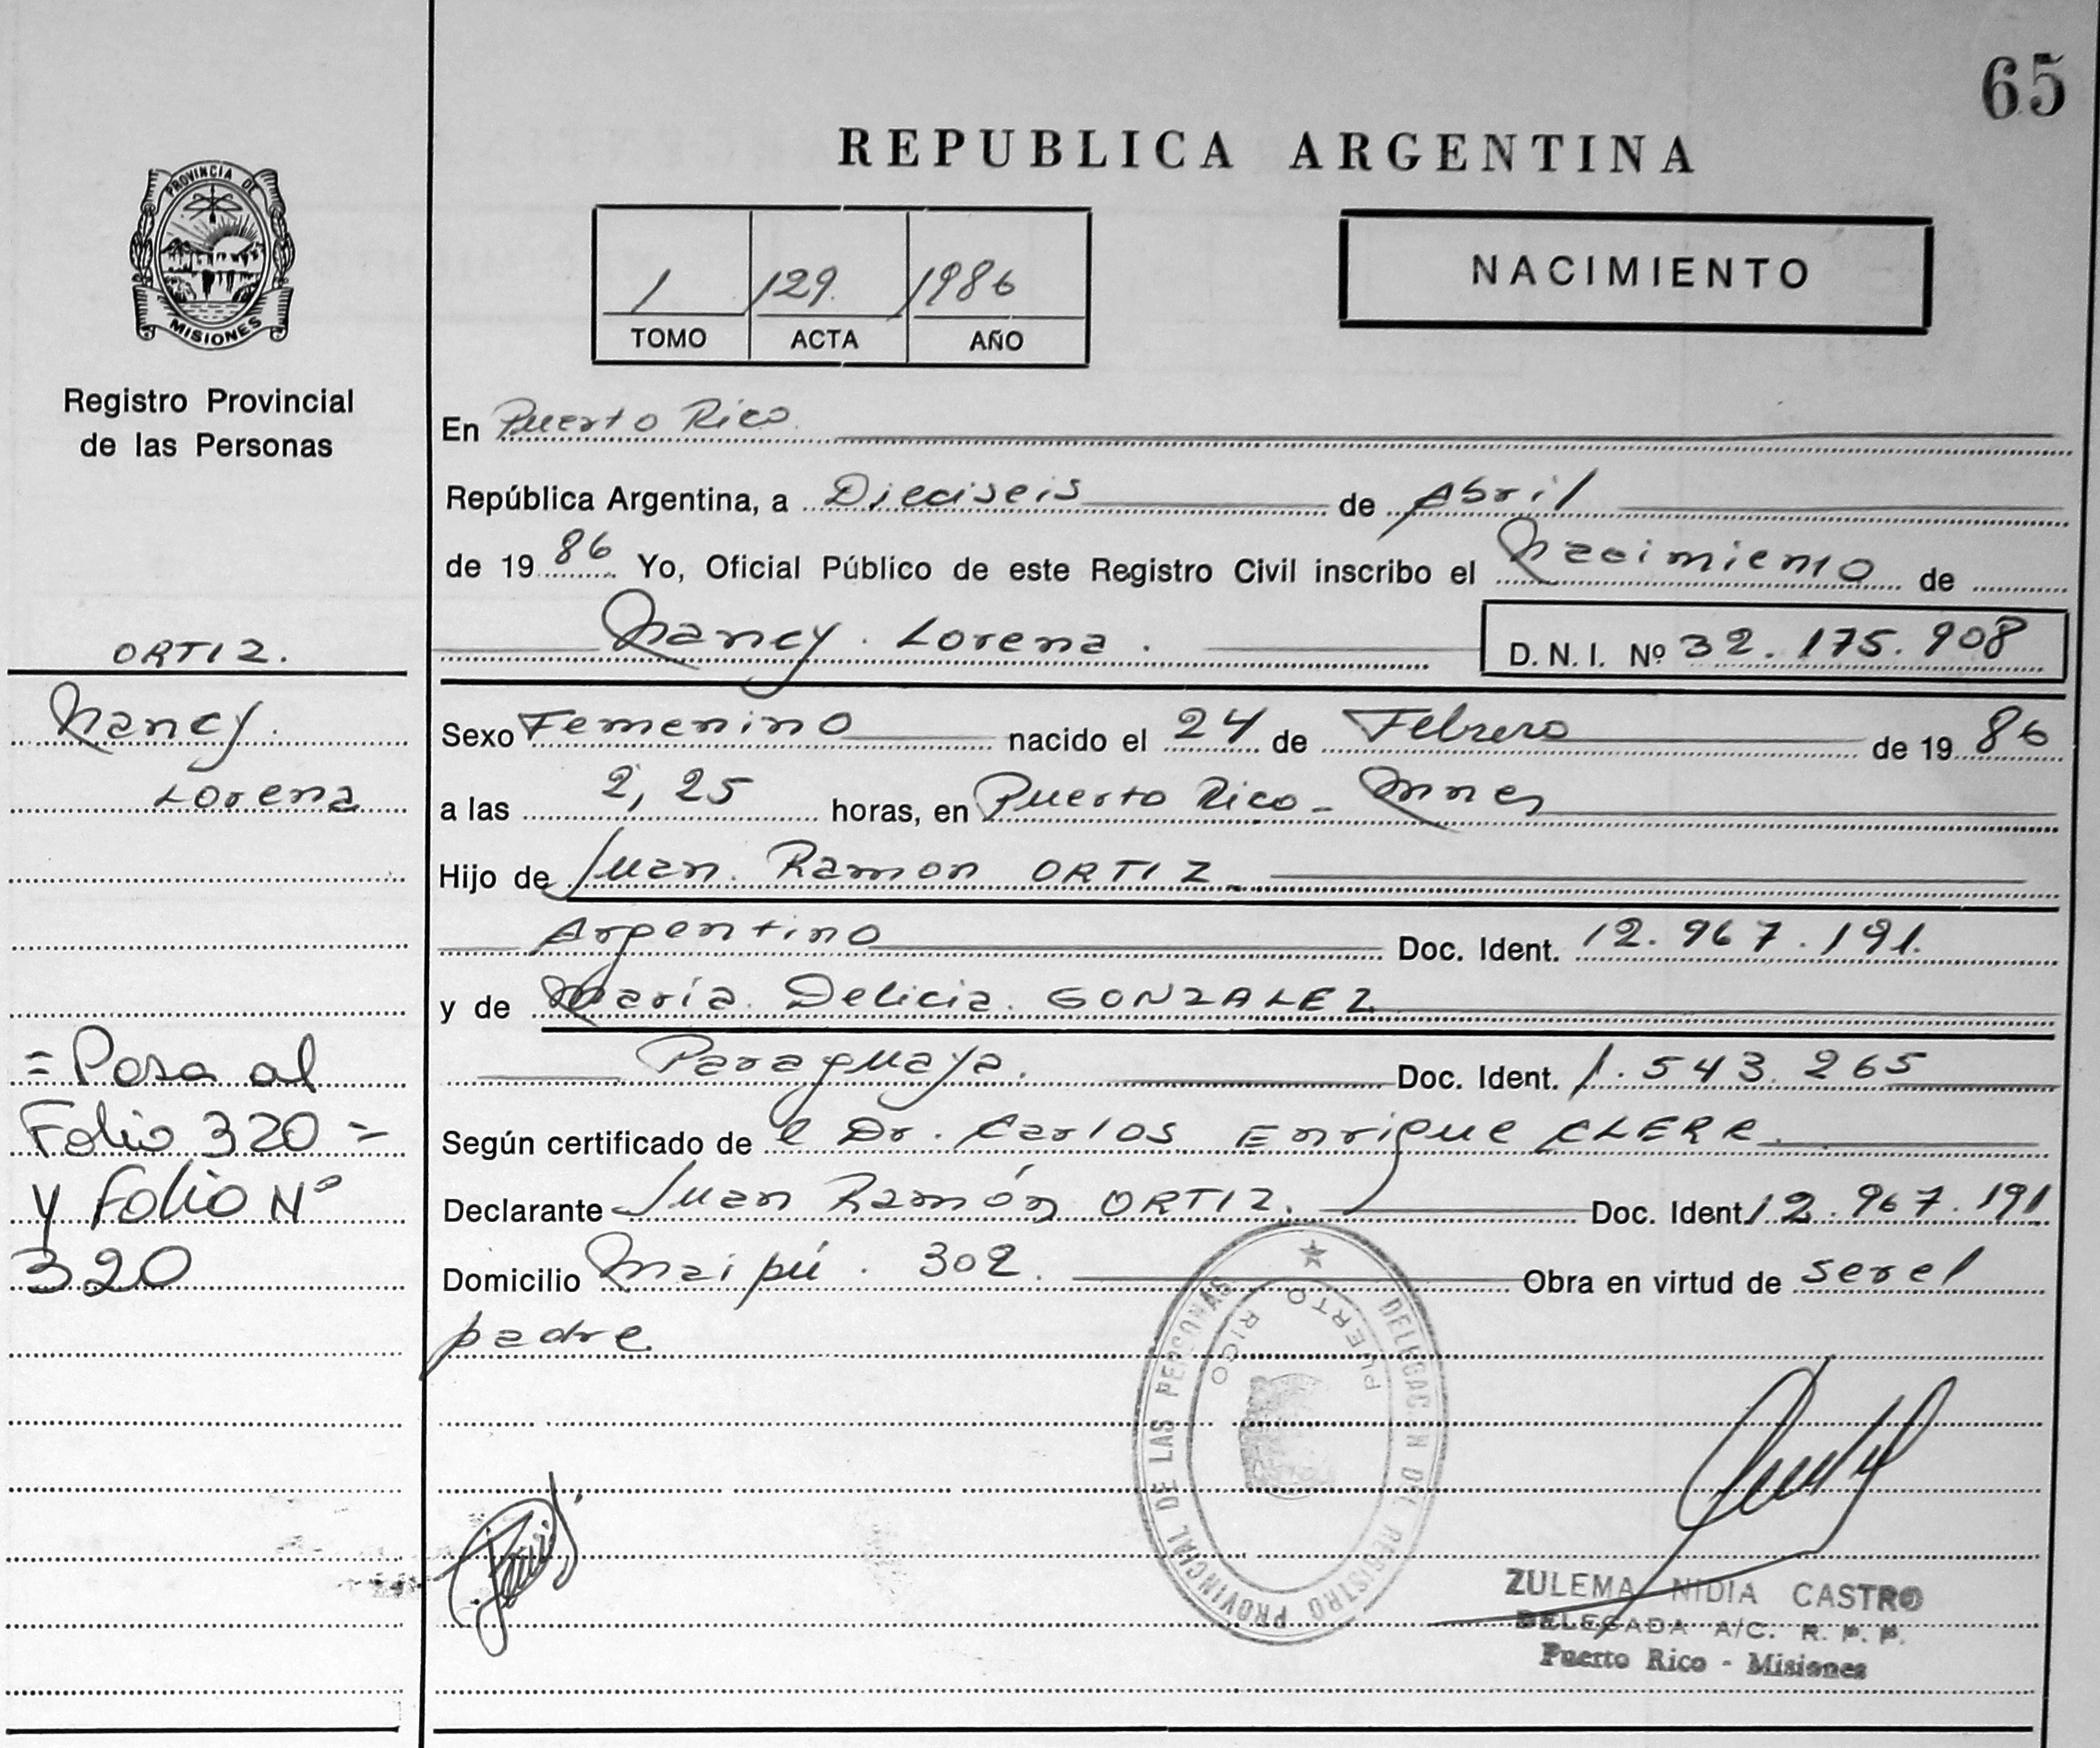 65
REPUBLICA ARGENTINA
PROVINCIA DE
MISIONES
1 129 1986
TOMO ACTA AÑO
NACIMIENTO
Registro Provincial
de las Personas
En Puerto Rico
República Argentina, a Dieciseis de Abril
de 1986 Yo, Oficial Público de este Registro Civil inscribo el Nacimiento de
Nancy Lorena. D. N. I. Nº 32.175.908
ORTIZ.
Nancy
Lorena
Sexo Femenino nacido el 24 de Febrero de 1986
a las 2,25 horas, en Puerto Rico - Mnes
Hijo de Juan Ramon ORTIZ
Argentino Doc. Ident. 12.967.191
y de María Delicia GONZALEZ
Paraguaya. Doc. Ident. 1.543.265
Según certificado de el Dr. Carlos Enrique CLERR
Declarante Juan Ramón ORTIZ. Doc. Ident. 12.967.191
Domicilio Maipú 302. Obra en virtud de ser el
padre
= Pasa al
Folio 320 =
y folio Nº
320
DELEGACION DEL REGISTRO PROVINCIAL DE LAS PERSONAS
PUERTO RICO
ZULEMA NIDIA CASTRO
DELEGADA A/C. R. P. P.
Puerto Rico - Misiones